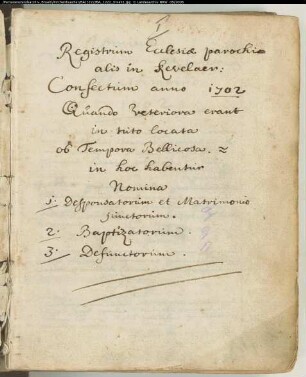 Registrum Ecclesiæ parochi
alis in Kevelaer:
Confectum anno 1702
Quando veteriora erant
in tuto locata
ob Tempora Bellicosa. ≈
in hoc habentur
Nomina
1: Desponsatorum et Matrimonio
junctorum.
2. Baptizatorum.
3. Defunctorum.